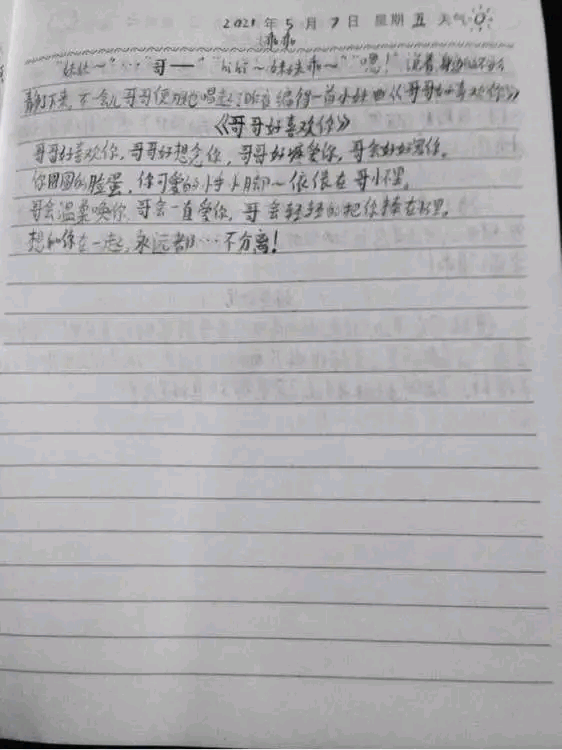 2021年5月7日 星期五 天气
乖乖
"妹妹~"…"哥——" "哥哥~妹妹乖~" "嗯!" 说着,
静下来,不一会儿哥哥便唱起了 编得一首小《哥哥好喜欢你》
《哥哥好喜欢你》
哥哥好喜欢你,哥哥好想念你,哥哥好疼爱你,哥会好好宠你。
你圆圆的脸蛋,你可爱的小手小脚~依偎在哥怀里。
哥会温柔唤你,哥会一直爱你,哥会轻轻的把你搂在怀里。
想和你在一起,永远都…不分离!